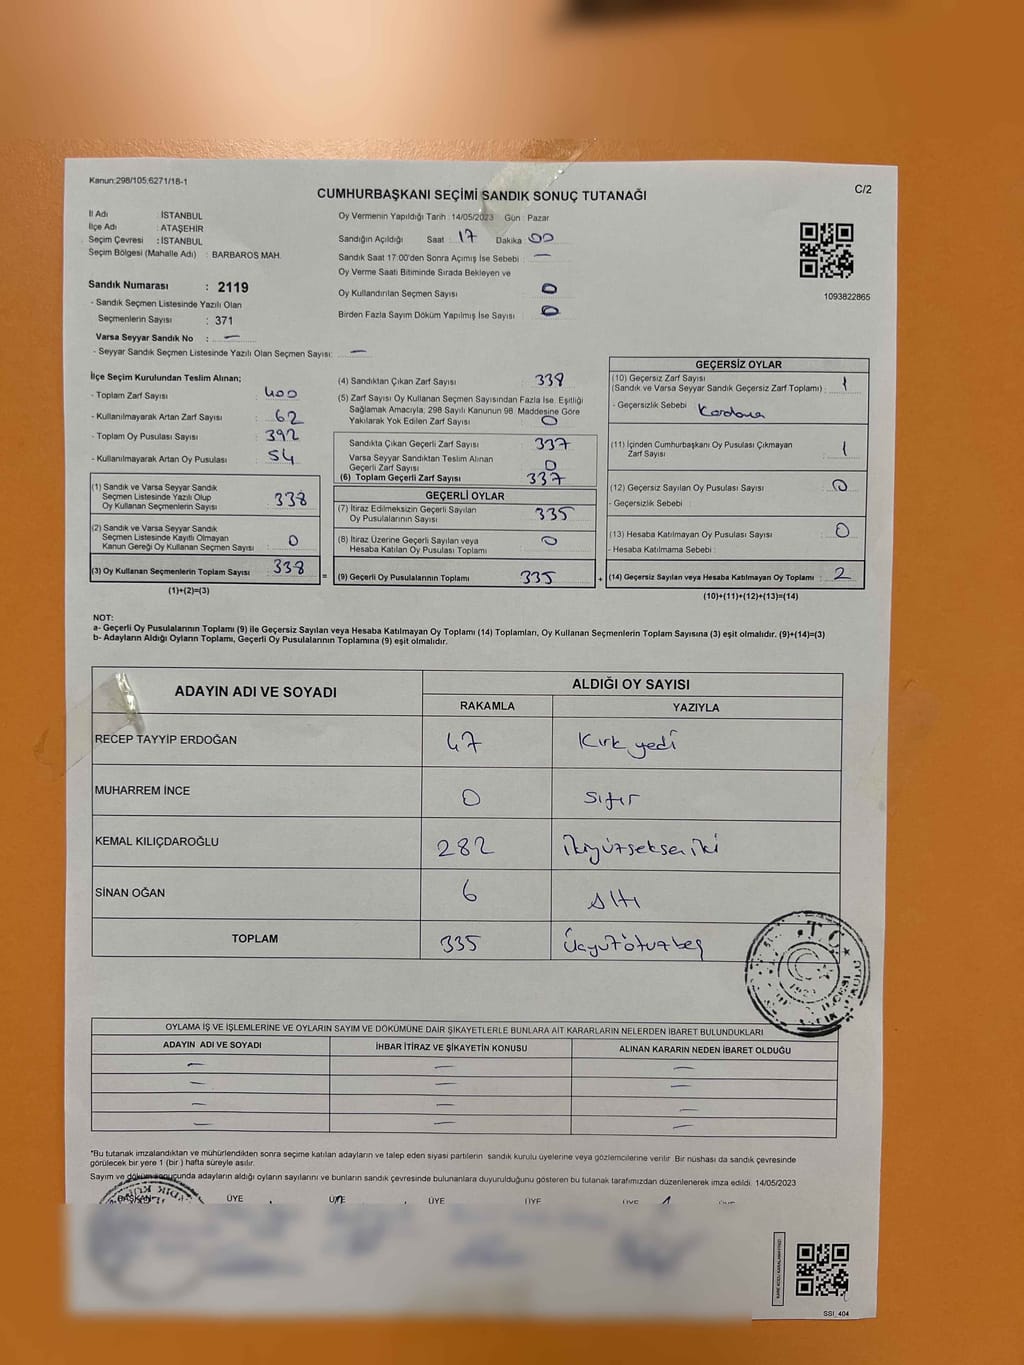 Kanun:298/105;6271/18-1
C/2
CUMHURBAŞKANI SEÇİMİ SANDIK SONUÇ TUTANAĞI
İl Adı : İSTANBUL
İlçe Adı : ATAŞEHİR
Seçim Çevresi : İSTANBUL
Seçim Bölgesi (Mahalle Adı) : BARBAROS MAH.
Sandık Numarası : 2119
- Sandık Seçmen Listesinde Yazılı Olan
Seçmenlerin Sayısı : 371
Varsa Seyyar Sandık No : —
- Seyyar Sandık Seçmen Listesinde Yazılı Olan Seçmen Sayısı: —
Oy Vermenin Yapıldığı Tarih : 14/05/2023 Gün : Pazar
Sandığın Açıldığı Saat : 17 Dakika : 00
Sandık Saat 17:00'den Sonra Açımış İse Sebebi : —
Oy Verme Saati Bitiminde Sırada Bekleyen ve
Oy Kullandırılan Seçmen Sayısı : 0
Birden Fazla Sayım Döküm Yapılmış İse Sayısı : 0
1093822865
İlçe Seçim Kurulundan Teslim Alınan;
- Toplam Zarf Sayısı : 400
- Kullanılmayarak Artan Zarf Sayısı : 62
- Toplam Oy Pusulası Sayısı : 392
- Kullanılmayarak Artan Oy Pusulası : 54
(1) Sandık ve Varsa Seyyar Sandık
Seçmen Listesinde Yazılı Olup
Oy Kullanan Seçmenlerin Sayısı : 338
(2) Sandık ve Varsa Seyyar Sandık
Seçmen Listesinde Kayıtlı Olmayan
Kanun Gereği Oy Kullanan Seçmen Sayısı : 0
(3) Oy Kullanan Seçmenlerin Toplam Sayısı : 338
(1)+(2)=(3)
(4) Sandıktan Çıkan Zarf Sayısı : 338
(5) Zarf Sayısı Oy Kullanan Seçmen Sayısından Fazla İse, Eşitliği
Sağlamak Amacıyla, 298 Sayılı Kanunun 98. Maddesine Göre
Yakılarak Yok Edilen Zarf Sayısı : 0
Sandıkta Çıkan Geçerli Zarf Sayısı : 337
Varsa Seyyar Sandıktan Teslim Alınan
Geçerli Zarf Sayısı : 0
(6) Toplam Geçerli Zarf Sayısı : 337
GEÇERLİ OYLAR
(7) İtiraz Edilmeksizin Geçerli Sayılan
Oy Pusulalarının Sayısı : 335
(8) İtiraz Üzerine Geçerli Sayılan veya
Hesaba Katılan Oy Pusulası Toplamı : 0
= (9) Geçerli Oy Pusulalarının Toplamı : 335 +
GEÇERSİZ OYLAR
(10) Geçersiz Zarf Sayısı
(Sandık ve Varsa Seyyar Sandık Geçersiz Zarf Toplamı) : 1
- Geçersizlik Sebebi :
(11) İçinden Cumhurbaşkanı Oy Pusulası Çıkmayan
Zarf Sayısı : 1
(12) Geçersiz Sayılan Oy Pusulası Sayısı : 0
- Geçersizlik Sebebi :
(13) Hesaba Katılmayan Oy Pusulası Sayısı : 0
- Hesaba Katılmama Sebebi :
(14) Geçersiz Sayılan veya Hesaba Katılmayan Oy Toplamı : 2
(10)+(11)+(12)+(13)=(14)
NOT:
a- Geçerli Oy Pusulalarının Toplamı (9) ile Geçersiz Sayılan veya Hesaba Katılmayan Oy Toplamı (14) Toplamları, Oy Kullanan Seçmenlerin Toplam Sayısına (3) eşit olmalıdır. (9)+(14)=(3)
b- Adayların Aldığı Oyların Toplamı, Geçerli Oy Pusulalarının Toplamına (9) eşit olmalıdır.
ADAYIN ADI VE SOYADI
ALDIĞI OY SAYISI
RAKAMLA YAZIYLA
RECEP TAYYİP ERDOĞAN 47 Kırk yedi
MUHARREM İNCE 0 Sıfır
KEMAL KILIÇDAROĞLU 282 İkiyüzseksen iki
SİNAN OĞAN 6 Altı
TOPLAM 335 Üçyüzotuzbeş
T.C.
OYLAMA İŞ VE İŞLEMLERİNE VE OYLARIN SAYIM VE DÖKÜMÜNE DAİR ŞİKAYETLERLE BUNLARA AİT KARARLARIN NELERDEN İBARET BULUNDUKLARI
ADAYIN ADI VE SOYADI İHBAR İTİRAZ VE ŞİKAYETİN KONUSU ALINAN KARARIN NEDEN İBARET OLDUĞU
— — —
— — —
— — —
— — —
*Bu tutanak imzalandıktan ve mühürlendikten sonra seçime katılan adayların ve talep eden siyasi partilerin sandık kurulu üyelerine veya gözlemcilerine verilir. Bir nüshası da sandık çevresinde
görülecek bir yere 1 (bir ) hafta süreyle asılır.
Sayım ve döküm sonucunda adayların aldığı oyların sayılarını ve bunların sandık çevresinde bulunanlara duyurulduğunu gösteren bu tutanak tarafımızdan düzenlenerek imza edildi. 14/05/2023
BAŞKAN ÜYE ÜYE ÜYE ÜYE ÜYE
SSI_404